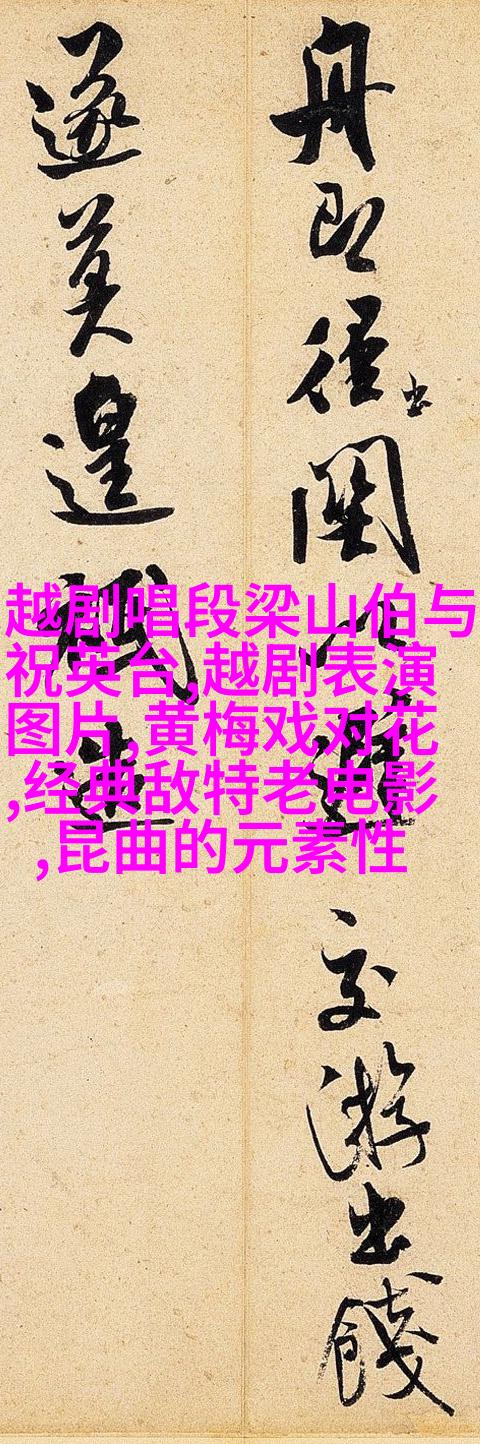 舟即徑出關以避交游出餞
遂莫遑造
越剧唱段梁山伯与
祝英台,越剧表演
图片,黄梅戏对花
,经典敌特老电影
,昆曲的元素性